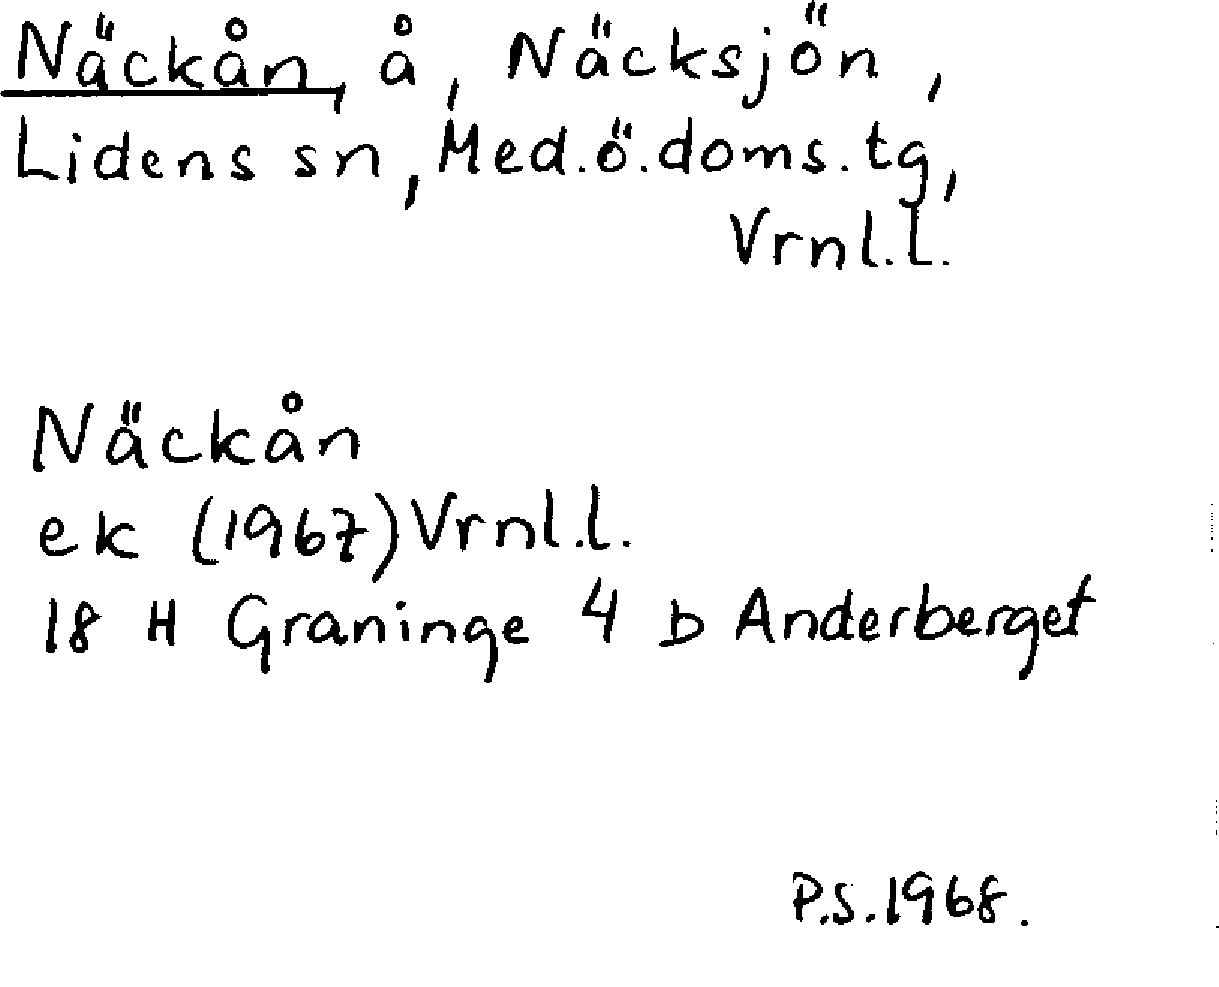 Näckån, å, Näcksjön,
Lidens sn, Med.ö.doms.tg,
Vrnl.l.
Näckån
ek (1967) Vrnl.l.
18 H Graninge 4 b Anderberget
P.S.1968.